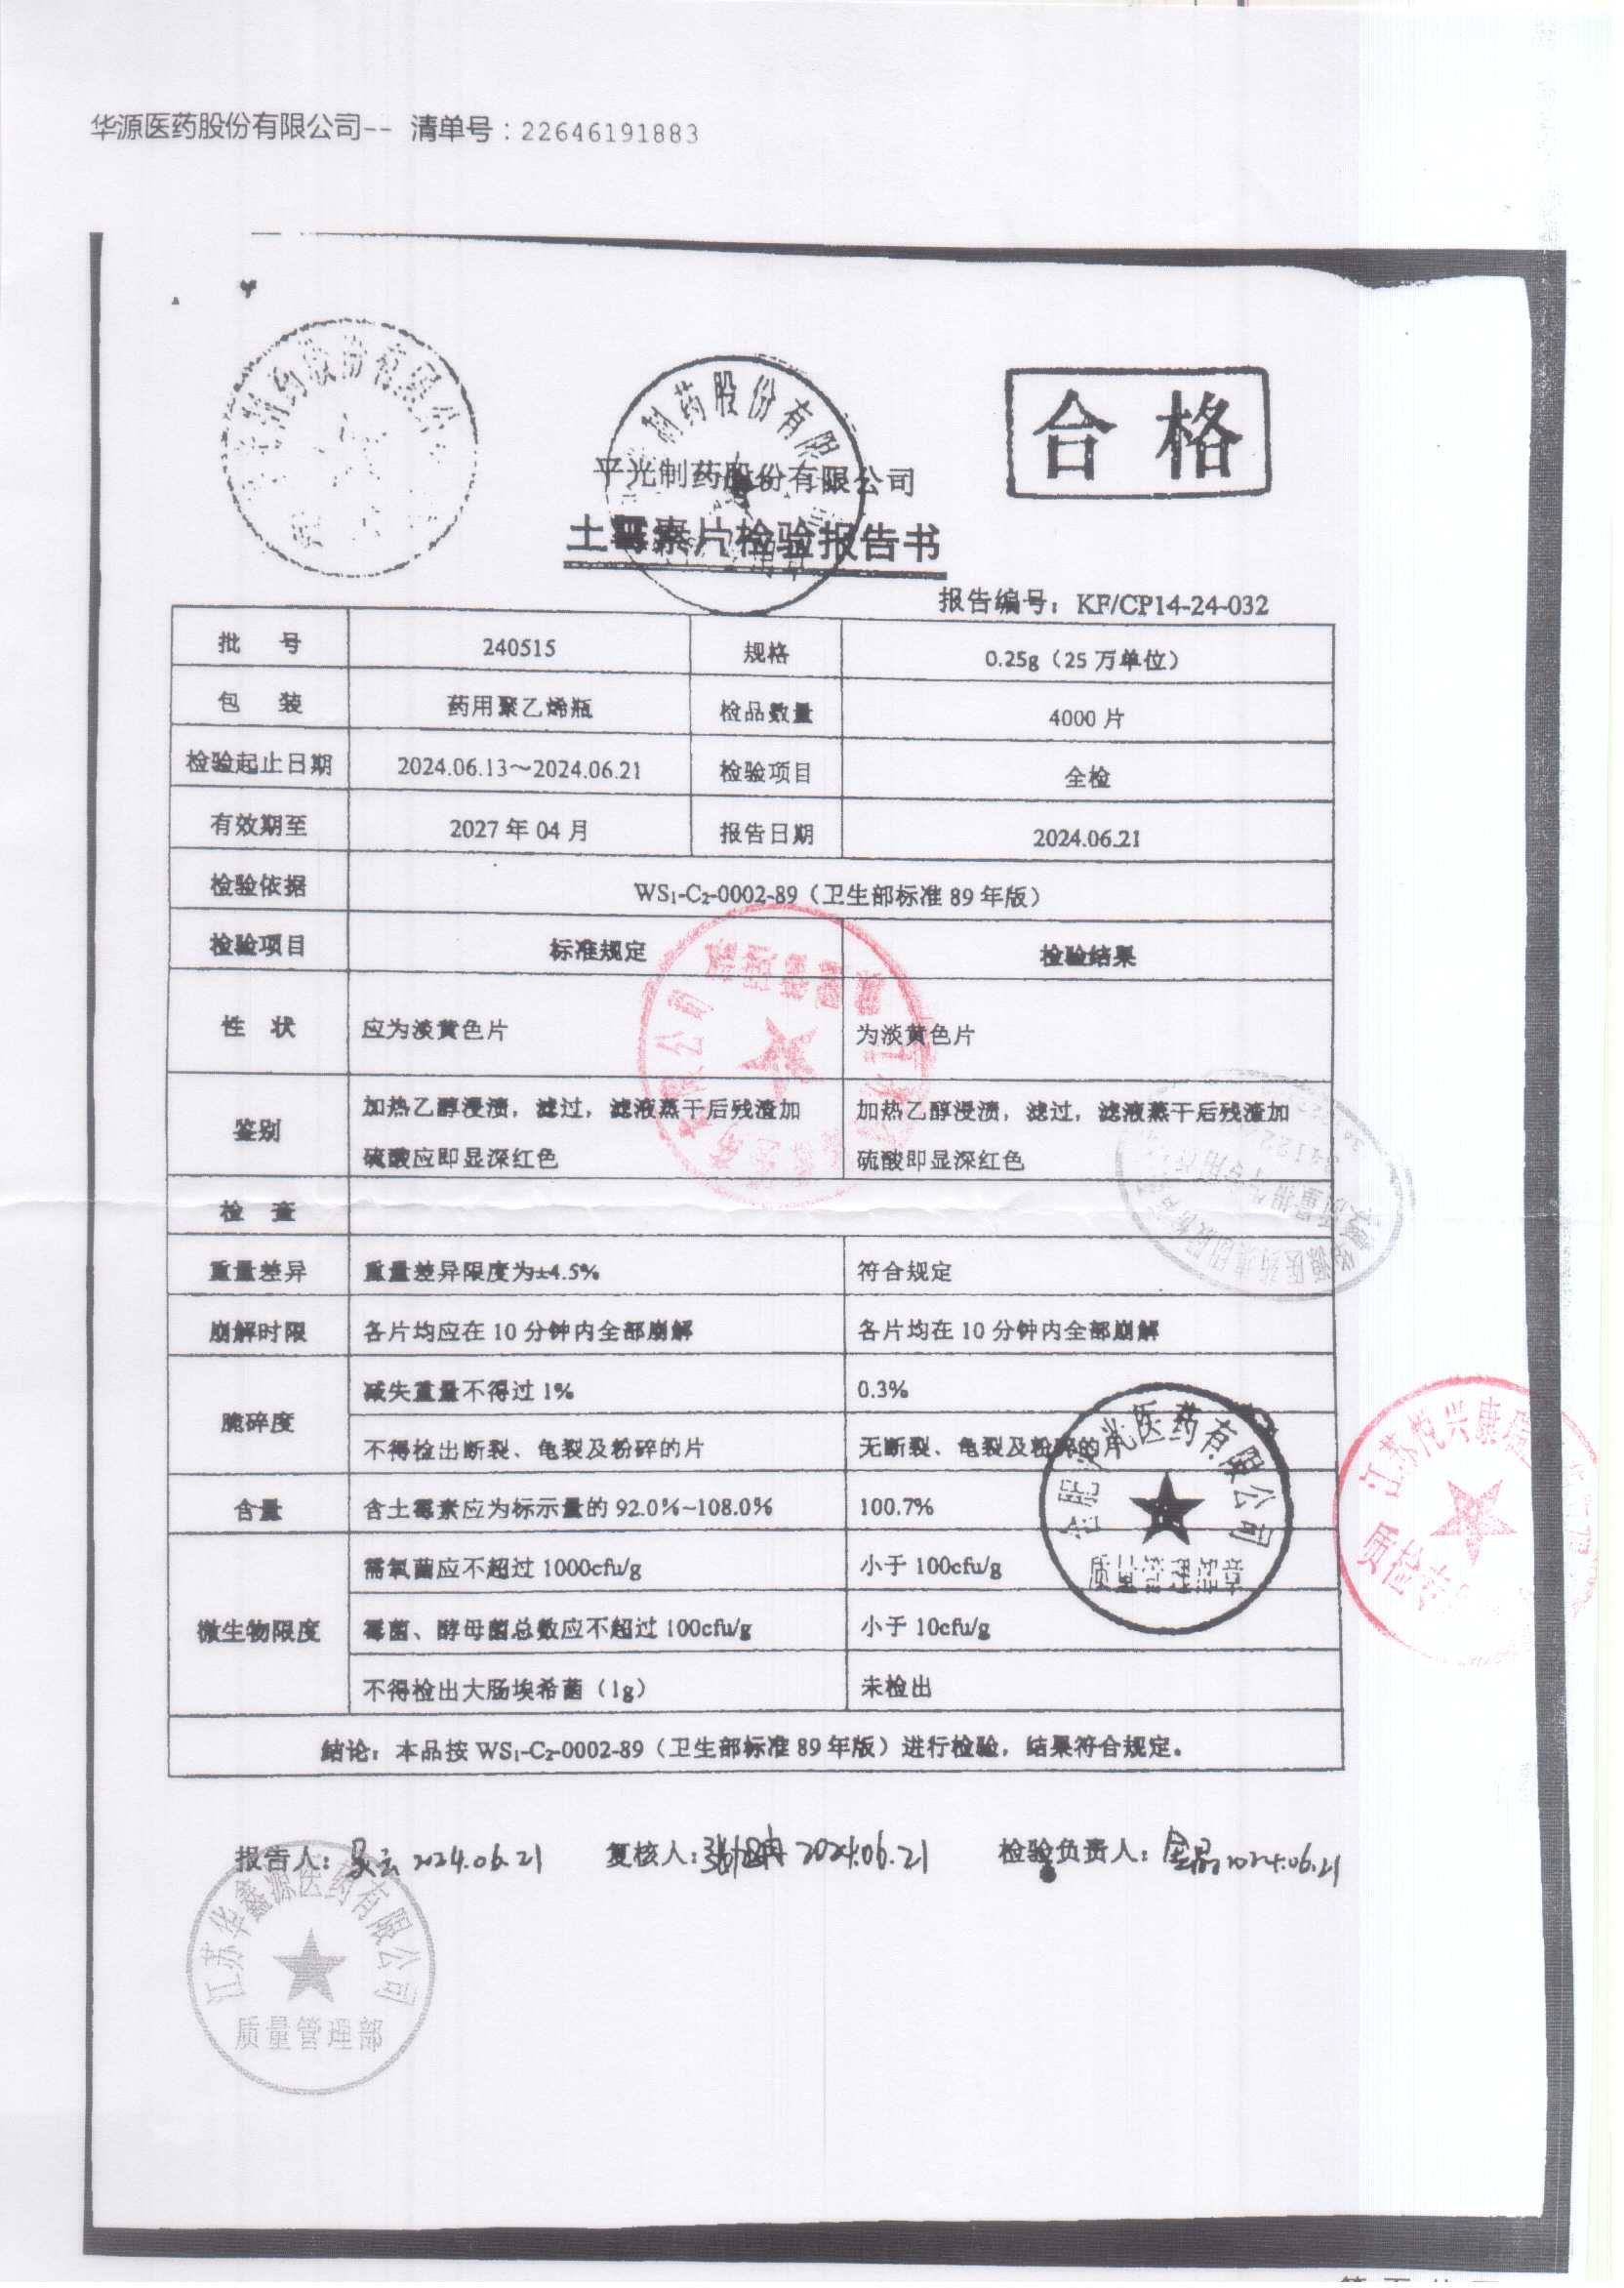 华源医药股份有限公司-- 清单号：22646191883
制药股份有限
合格
平光制药股份有限公司
土霉素片检验报告书
报告编号：KF/CP14-24-032
批 号 240515 规格 0.25g（25 万单位）
包 装 药用聚乙烯瓶 检品数量 4000 片
检验起止日期 2024.06.13～2024.06.21 检验项目 全检
有效期至 2027 年 04 月 报告日期 2024.06.21
检验依据 WS₁-C₂-0002-89（卫生部标准 89 年版）
检验项目 标准规定 检验结果
性 状 应为淡黄色片 为淡黄色片
鉴别 加热乙醇浸渍，滤过，滤液蒸干后残渣加 加热乙醇浸渍，滤过，滤液蒸干后残渣加
硫酸应即显深红色 硫酸即显深红色
检 查
重量差异 重量差异限度为±4.5% 符合规定
崩解时限 各片均应在 10 分钟内全部崩解 各片均在 10 分钟内全部崩解
脆碎度 减失重量不得过 1% 0.3%
不得检出断裂、龟裂及粉碎的片 无断裂、龟裂及粉碎的片
含量 含土霉素应为标示量的 92.0%~108.0% 100.7%
微生物限度 需氧菌应不超过 1000cfu/g 小于 100cfu/g
霉菌、酵母菌总数应不超过 100cfu/g 小于 10cfu/g
不得检出大肠埃希菌（1g） 未检出
医药有限公司
质量管理部章
江苏悦兴康
结论：本品按 WS₁-C₂-0002-89（卫生部标准 89 年版）进行检验，结果符合规定。
报告人： 2024.06.21 复核人： 2024.06.21 检验负责人： 2024.06.21
江苏华鑫源医药有限公司
质量管理部